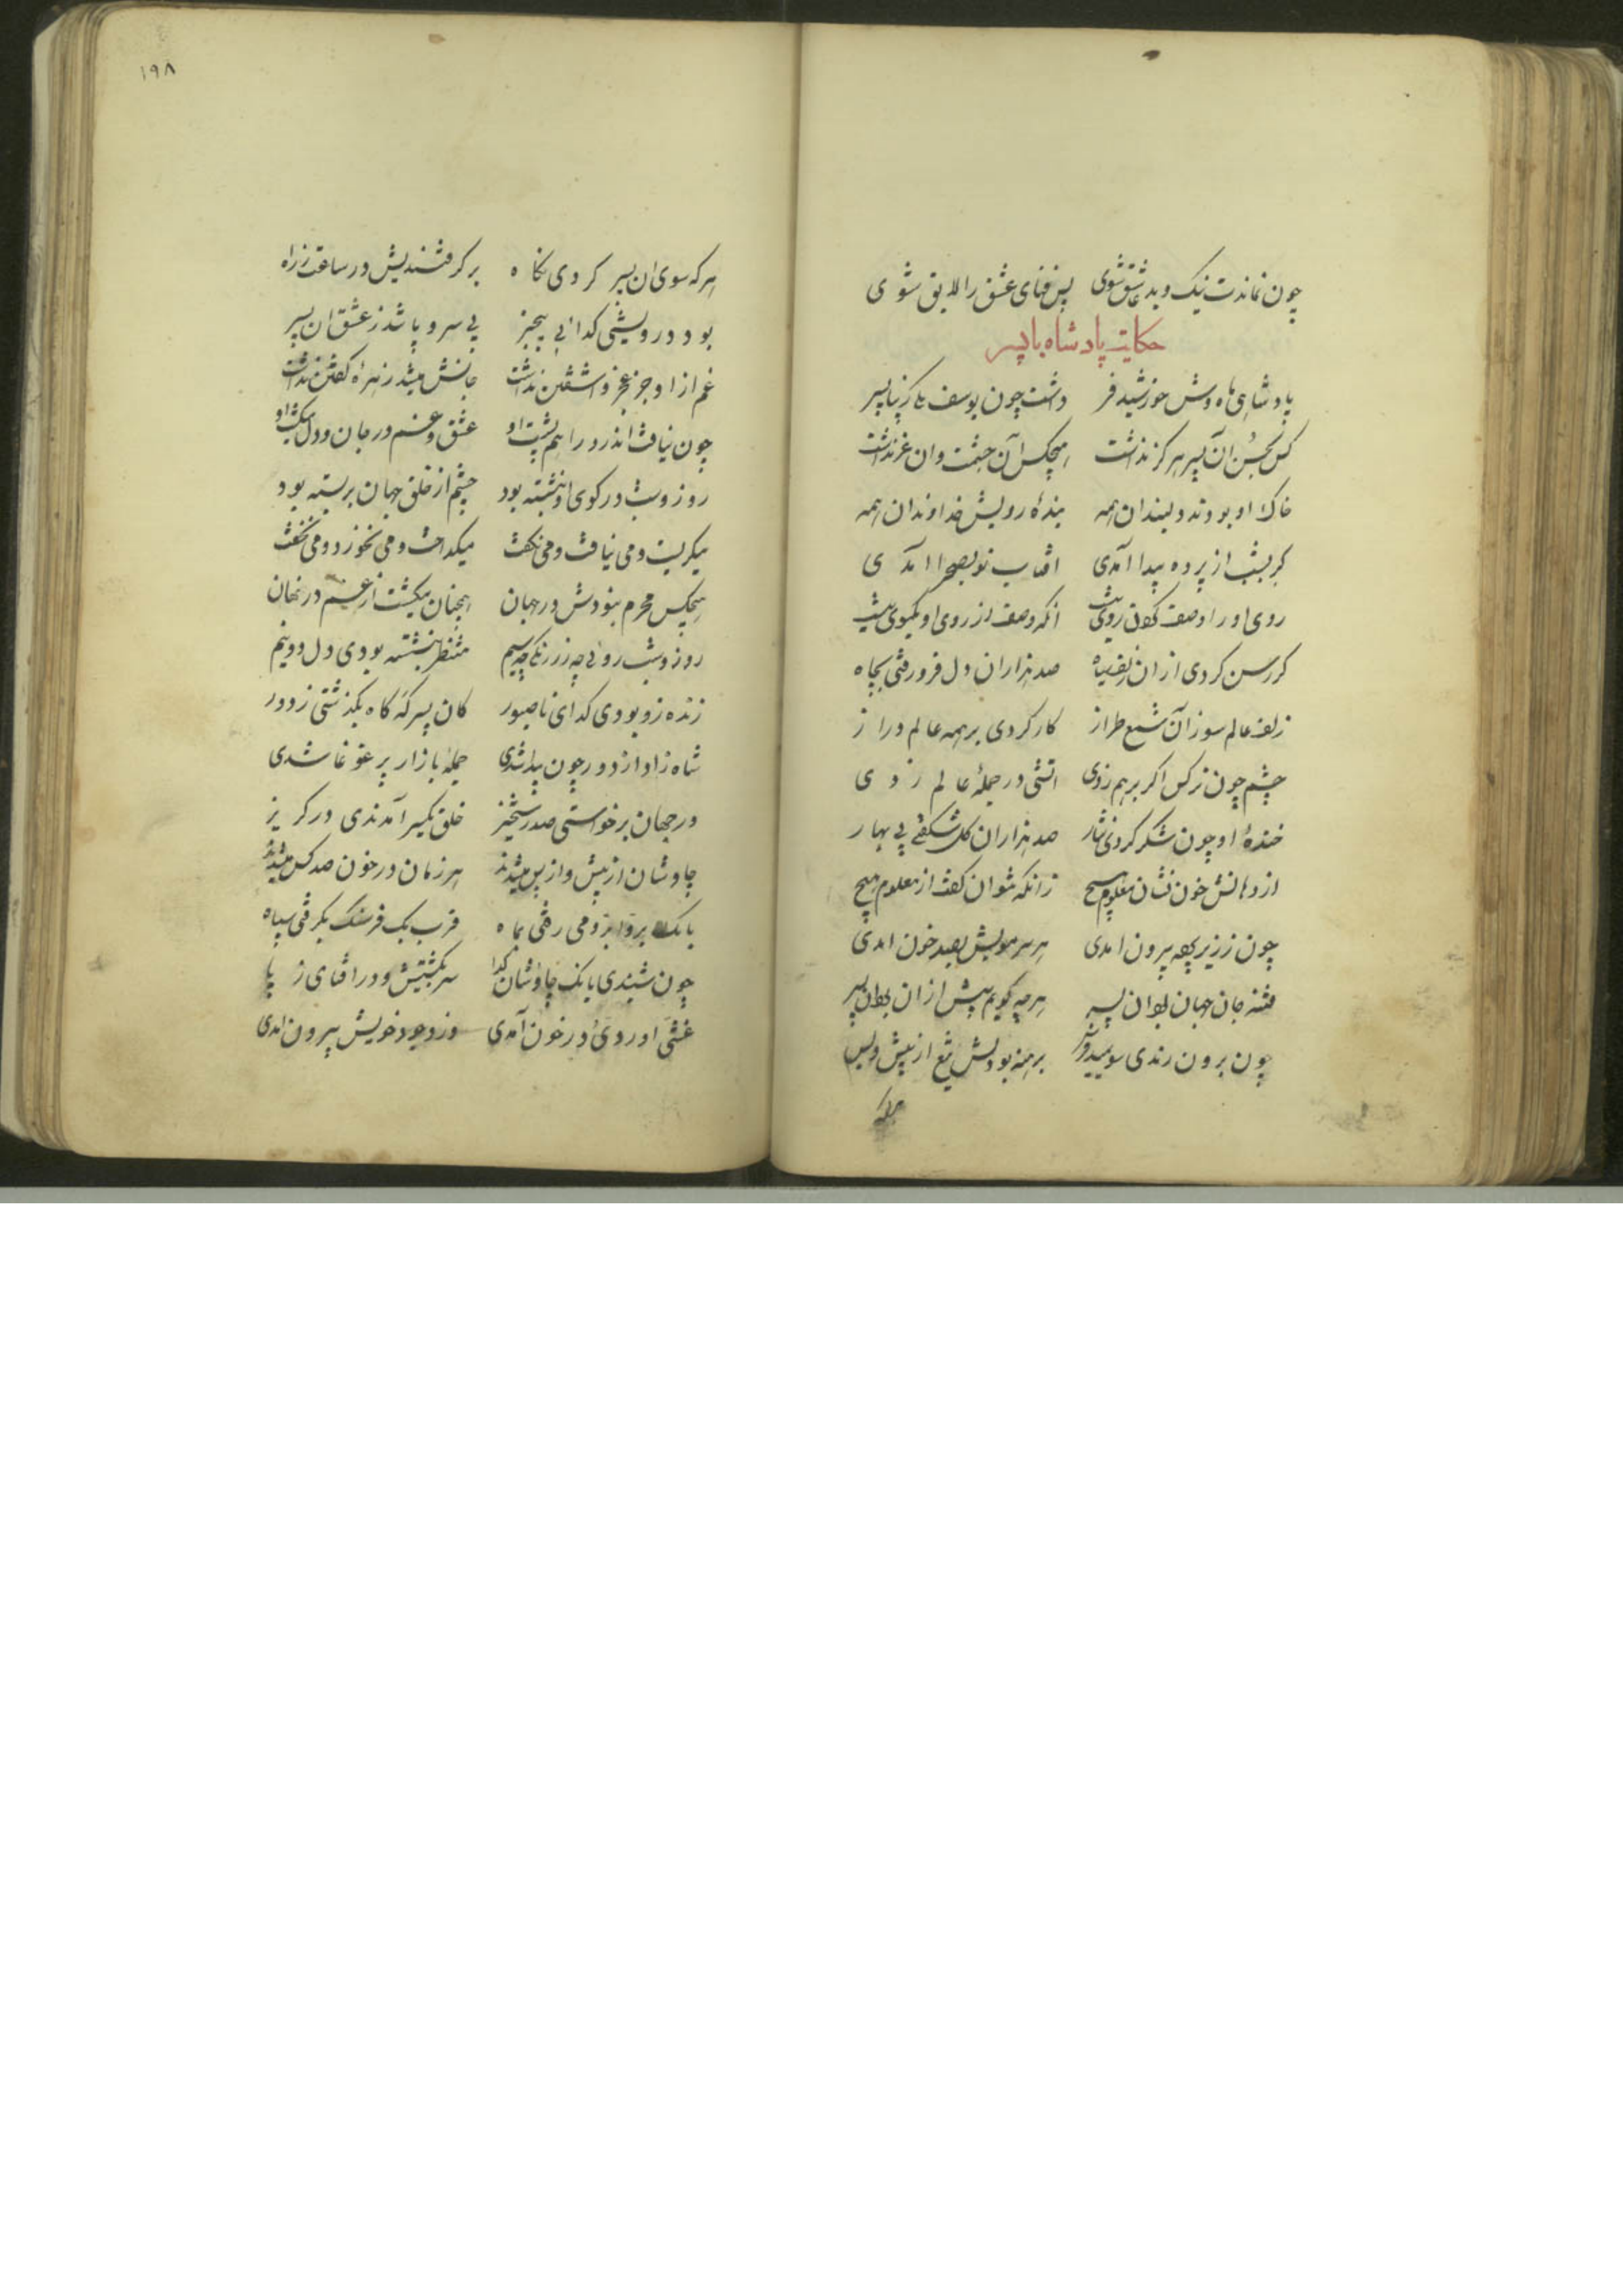 چون نماندت نیک و بد عاشق شوی پس فنای عشق را لایق شوی
حکایت پادشاه با پسر
پادشاهی ماه وش خورشید فر داشت چون یوسف یکی زیبا پسر
کس بحسن آن پسر هرگز نداشت هیچکس آن حشمت و ان عز نداشت
خاک او بودند دلبندان همه بندهٔ رویش خداوندان همه
گر بشب از پرده پیدا آمدی افتاب نو بصحرا آمدی
روی او را وصف کردن روی نیست انکه وصف از روی او یکموی نیست
گر رسن کردی از ان زلف سیاه صد هزاران دل فرو رفتی بچاه
زلف عالم سوز آن شمع طراز کار کردی بر همه عالم دراز
چشم چون نرکس اگر بر هم زدی اتشی در جملهٔ عالم زدی
خندهٔ او چون شکر کردی نثار صد هزاران گل شکفتی بی بهار
از دهانش خود نشان معلوم هیچ زانکه نتوان گفت از معلوم هیچ
چون ز زیر پرده بیرون امدی هر سر مویش بصد خون امدی
فتنه جان جهان بود ان پسر هرچه گویم بیش از ان بود ان پسر
چون برون رندی سوی میدان برهنه بودیش تیغ از پیش و پس
هرکه
۱۹۸
هرکه سوی ان پسر کردی نگاه برگرفتندیش در ساعت ز راه
بود درویشی گدائی بیخبر بی سر و پا شد ز عشق ان پسر
غم از او جز عجز و اشفتن نداشت جانش میشد زهرهٔ گفتن نداشت
چون نیافت اندرد را هم پشت او عشق و غم در جان و دل میکشت او
روز و شب در کوی او بنشسته بود چشم از خلق جهان بربسته بود
میگریست و می نیافت و می نگفت میگداخت و می نخورد و می نخفت
هیچکس محرم نبودش در جهان همچنان میکشت از غم در نهان
روز و شب روئی چو زر اشکی چو سیم منتظر بنشسته بودی دل دو نیم
زنده زو بودی گدای ناصبور کان پسر گه گاه بگذشتی ز دور
شاه زاد از دور چون پیدا شدی جملهٔ بازار پر غوغا شدی
در جهان برخواستی صد رستخیز خلق یکسر آمدندی در گریز
چاوشان از پیش و از پس میشدند هر زمان در خون صد کس میشدند
بانگ بردابرد می رفتی بماه قرب یک فرسنگ بگرفتی سپاه
چون شنیدی بانگ چاوشان گدا سر بگشتیش و در افتادی ز پا
غشی اوردی و در خون آمدی وز وجود خویش بیرون امدی